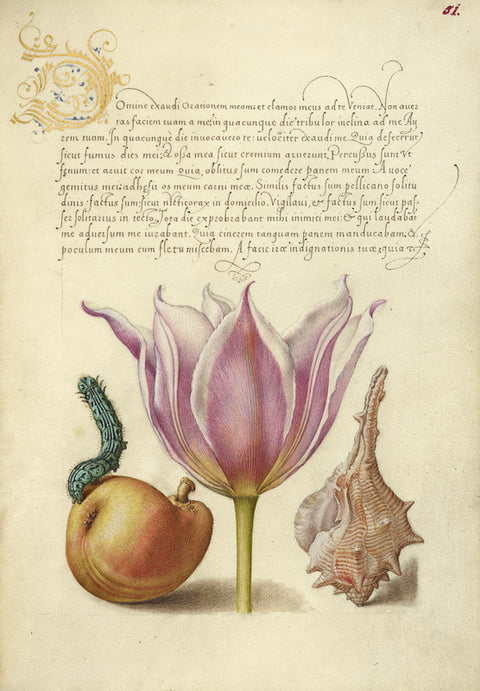 51.
Domine exaudi Orationem meam: et clamor meus ad te Veniat. Non auer
tas faciem tuam a me: in quacunque die tribulor inclina ad me Au
rem tuam. In quacunque die inuocauero te: velociter exaudi me. Quia defecerūt
sicut fumus dies mei: & ossa mea sicut cremium aruerunt. Percussus sum Vt
fœnum: et aruit cor meum quia oblitus sum comedere panem meum. A uoce
gemitus mei: adhesit os meum carni meæ. Similis factus sum pellicano solitu
dinis: factus sum sicut nicticorax in domicilio. Vigilaui, & factus sum sicut pas-
ser solitarius in tecto. Tota die exprobrabant mihi inimici mei: & qui laudabāt
me aduersum me iurabant. Quia cinerem tanquam panem manducabam: &
poculum meum cum fletu miscebam. A facie iræ indignationis tuæ: quia e